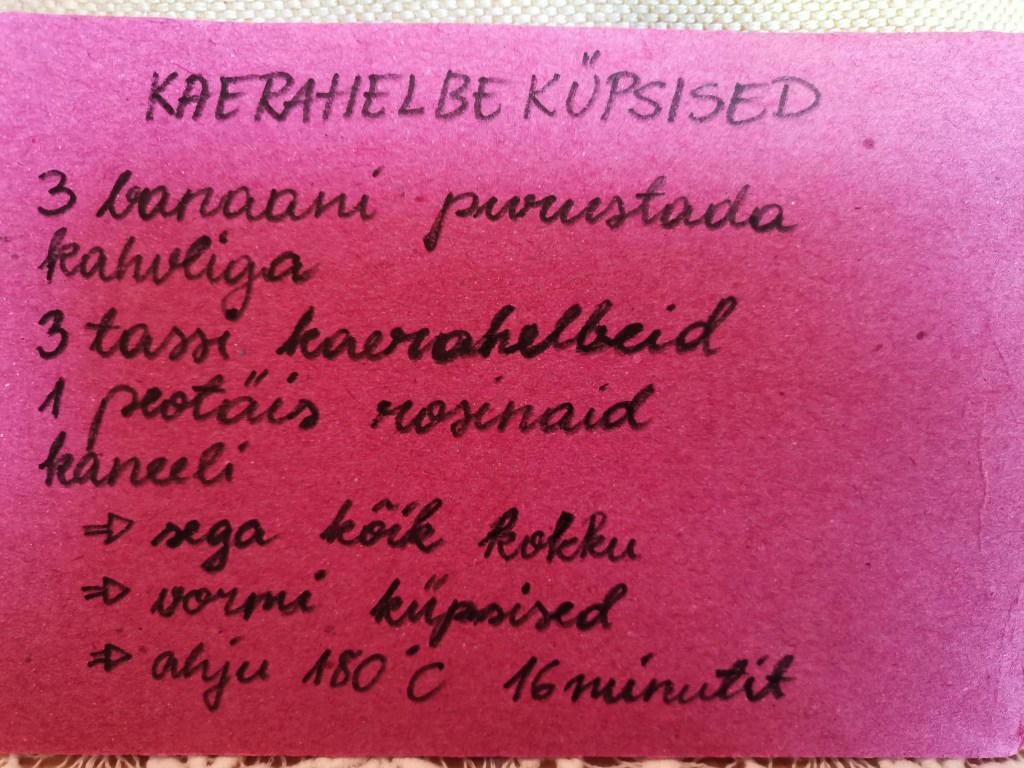 KAERAHELBE KÜPSISED
3 banaani purustada
kahvliga
3 tassi kaerahelbeid
1 peotäis rosinaid
kaneeli
⇒ sega kõik kokku
⇒ vormi küpsised
⇒ ahju 180°C 16 minutit